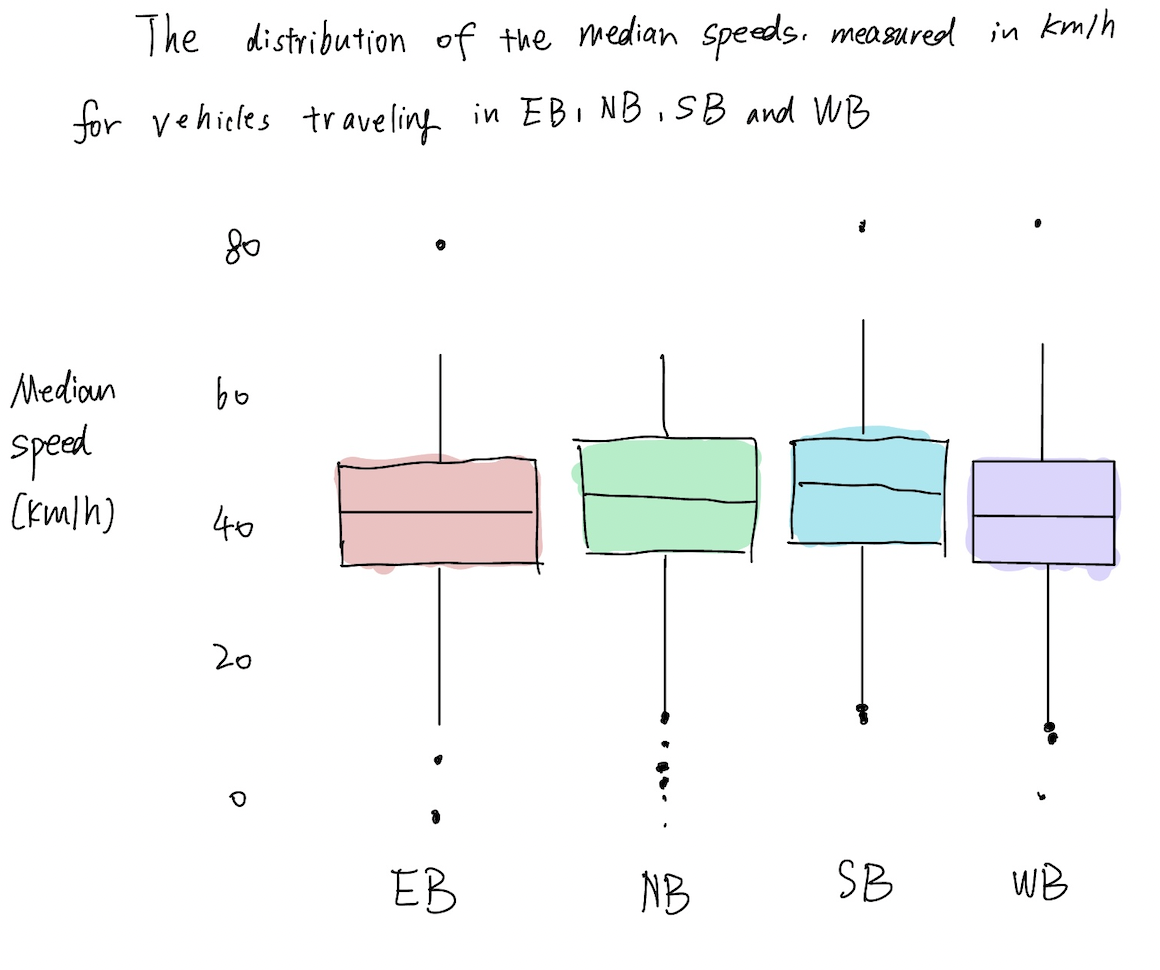 The distribution of the median speeds. measured in km/h
for vehicles traveling in EB, NB, SB and WB
80
Median
speed
(km/h)
60
40
20
0
EB
NB
SB
WB